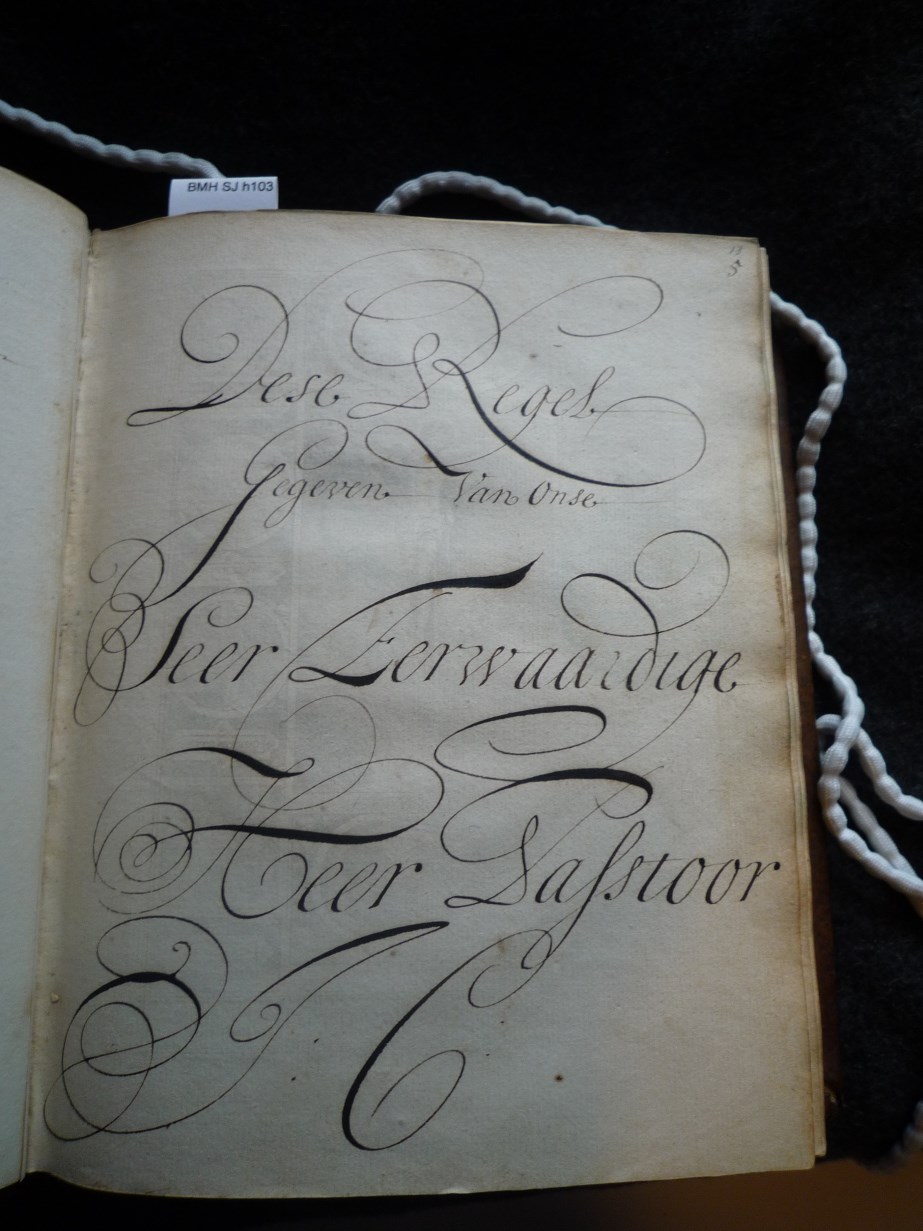 BMH SJ h103
Dese Regel
Gegeven Van Onse
Seer Eerwaardige
Heer Passtoor